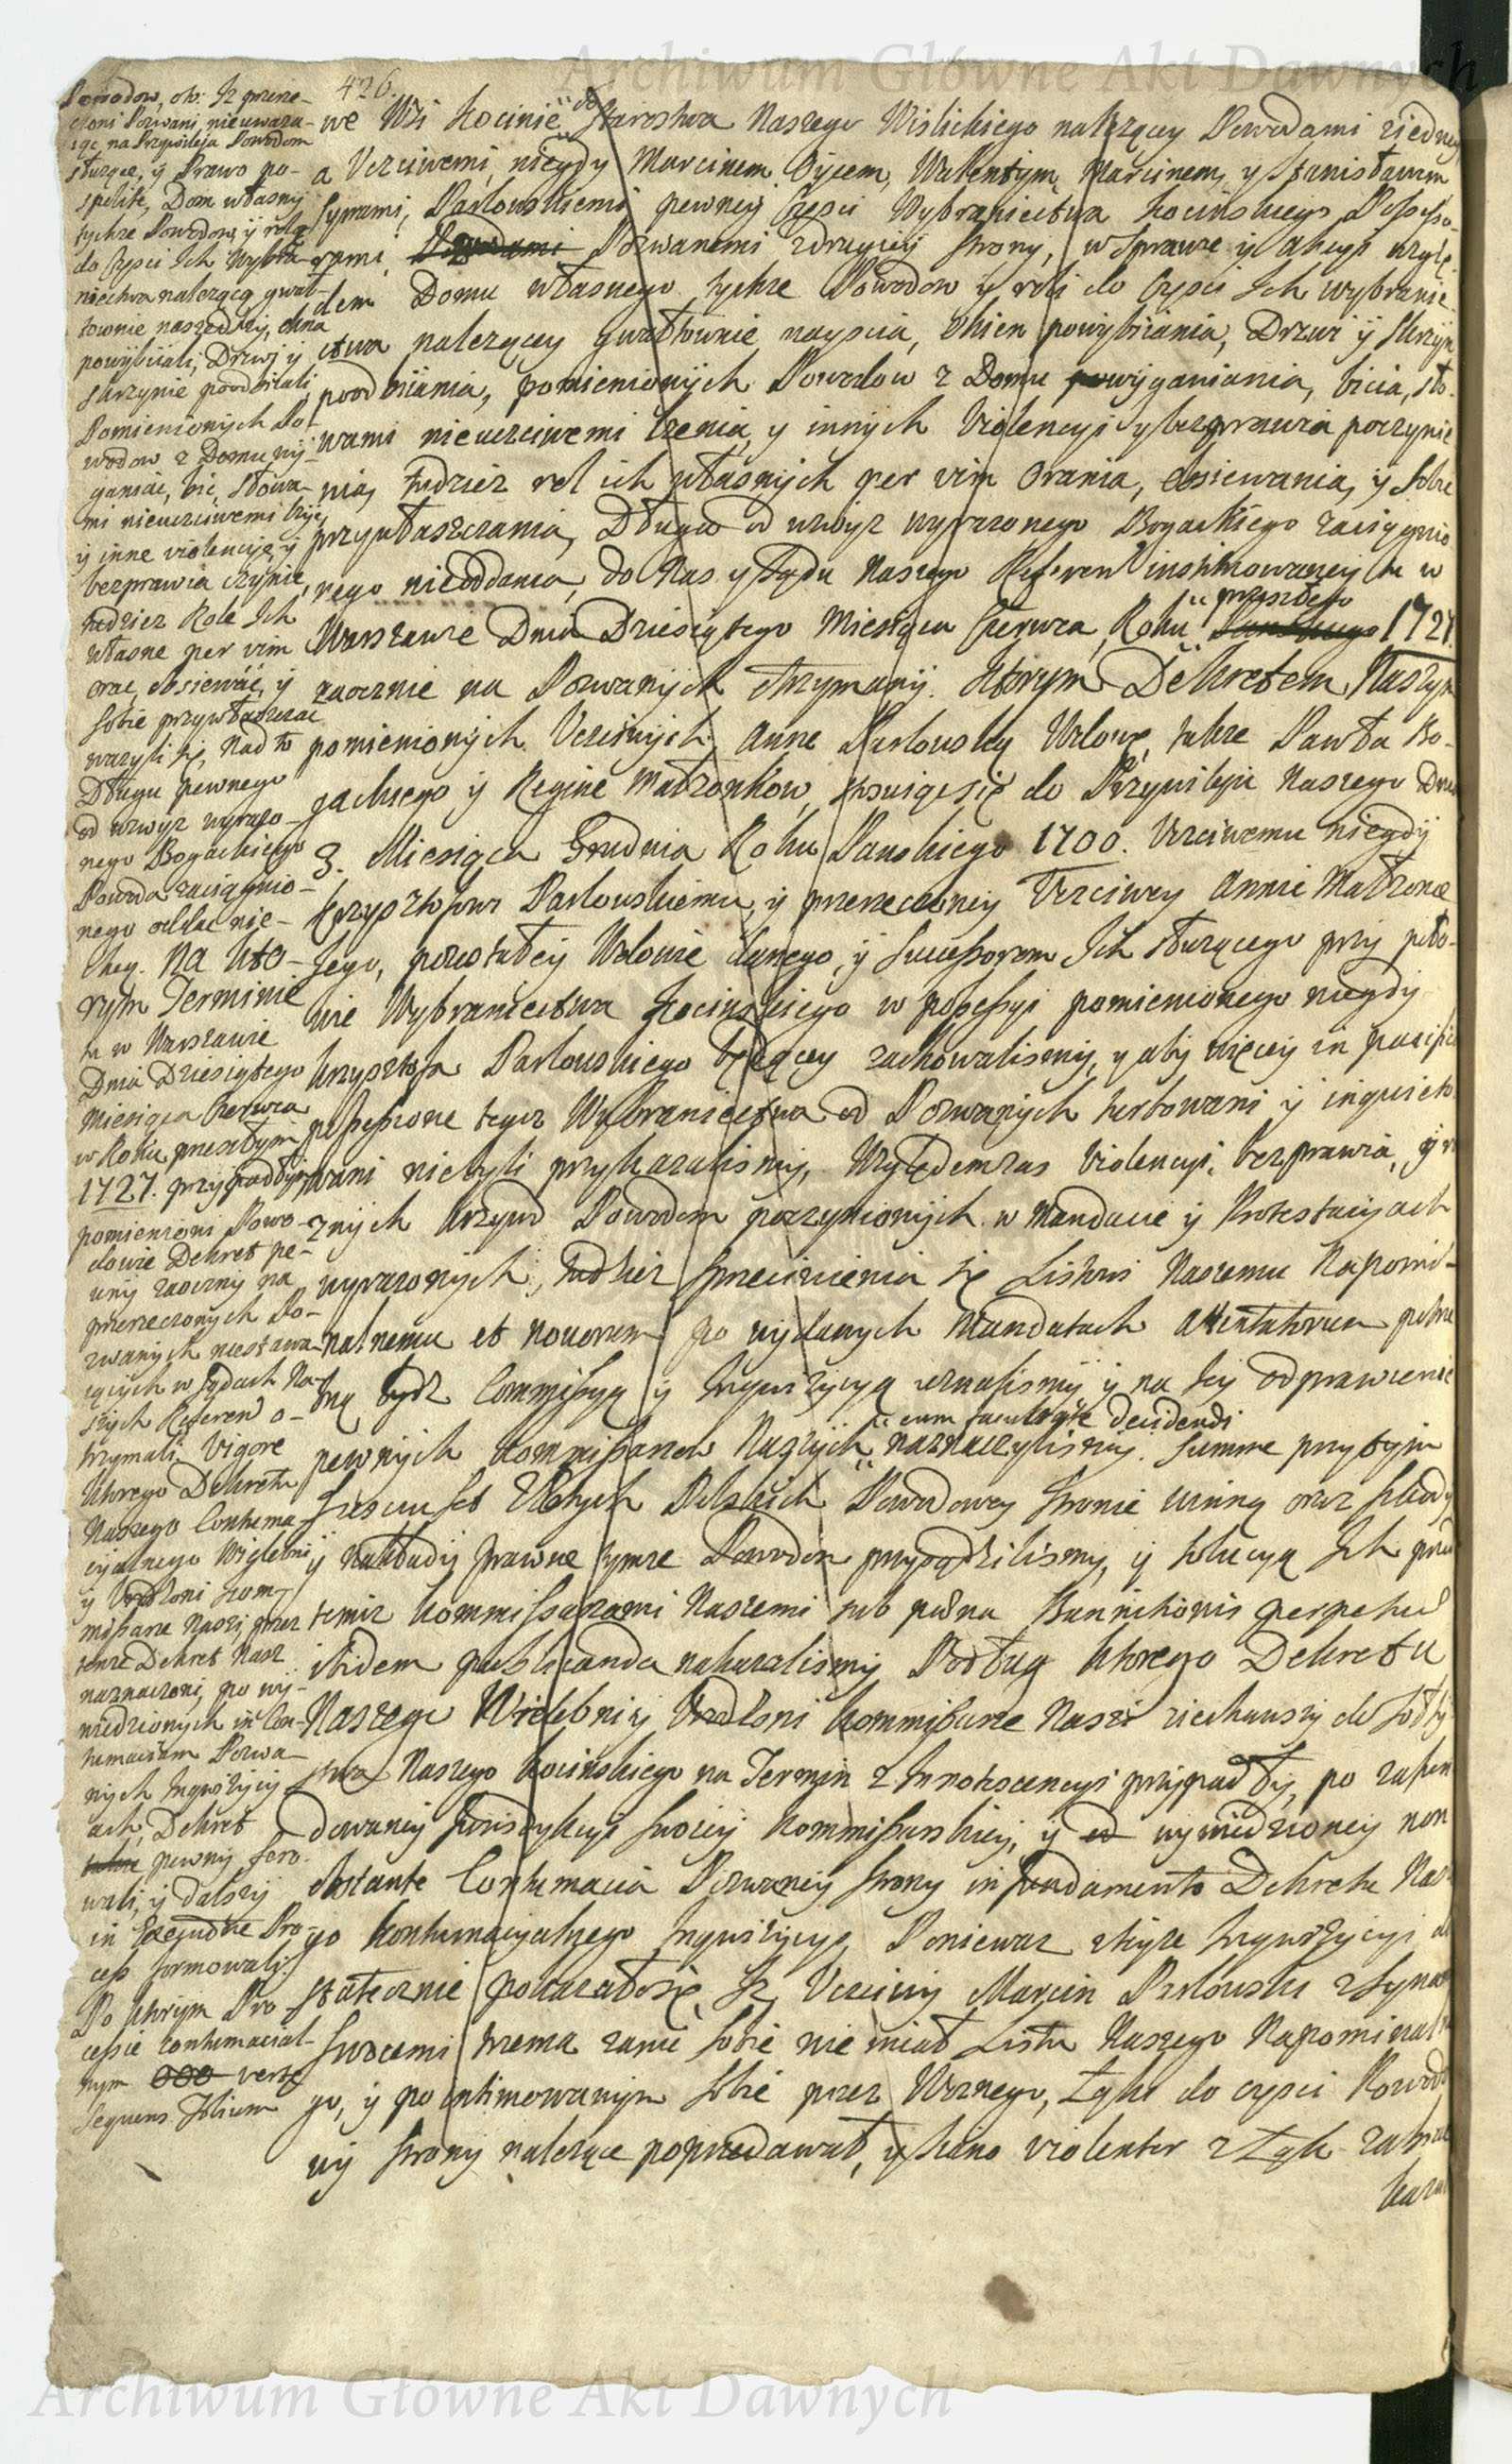 Archiwum Główne Akt Dawnych
426.
Powodow, ob: Iz prze
czeni Pozwani nieuwaza
iąc na Przywileja Powodom
służące, y Prawo po-
spolite, Dom własny
tychze Powodow, y rolą
do Częsci Ich Wybra-
niectwa nalezącą gwał-
townie naszedłszy, okna
powybiiali, Drzwi y
skrzynie poodbiiali,
Pomienionych Po-
wodow z Domu wy-
ganiać, bić, słowa-
mi nieuczciwemi lżyć,
y inne violencyje, y
bezprawia czynić,
tudziez Role Ich
własne per vim
orać, obsiewać, y
sobie przywłaszczac
wazyli się, nad to
Długu pewnego
od wzwyz wyrazo-
nego Bogackiego
Powoda zaciągnio-
nego oddac nie-
chcą. Na kto-
rym Terminie
tu w Warszawie
Dnia Dziesiątego
Miesiąca Czerwca
w Roku przeszłym
1727. przypadłym
pomienieni Powo-
dowie Dekret pe-
wny zaoczny na
przerzeczonych Po-
zwanych niestawa-
iących w Sądach Na-
szych Referen o-
trzymali. Vigore
ktorego Dekretu
Naszego Contuma-
cyalnego Wielebni
y Urodzeni Kom-
missarze Naszi, przez
tenze Dekret Nasz
naznaczeni, po wy-
wiedzionych in Con-
tumaciam Pozwa-
nych Inquizycy-
ach, Dekret
pewny fero-
wali, y dalszy
in Executione Pro-
cess formowali.
Po ktorym Pro-
cessie contumacial-
nym verte
sequens folium
we Wsi Kocinie do Starostwa Naszego Wislickiego nalezący Powodami ziedney
a Uczciwemi niegdy Marcinem Oycem, Walentym, Marcinem, y Stanisławem
Synami, Pasłowskiemi pewney Częsci Wybraniectwa Kocinskiego Possesso-
rami, Powodami Pozwanemi zdrugiey strony, w Sprawie y akcyi wzglę
dem Domu własnego tychze Powodow y roli do Częsci Ich wybranie
ctwa nalezącey gwałtownie nayscia, Okien powybiiania, Drzwi y Skrzyn
poodbiiania, pomienionych Powodow z Domu powyganiania, bicia, sło-
wami nieuczciwemi lżenia, y innych Violencyi y bezprawia poczynie
nia, tudziez rol ich własnych per vim Orania, obsiewania, y Sobie
przywłaszczania, Długu od wzwyz wyrazonego Bogackiego zaciągnio
nego nieoddania, do Nas y Sądu Naszego Referen instytuowaney tu w
Warszawie Dnia Dziesiątego Miesiąca Czerwca, Roku przeszłego 1727.
zaocznie na Pozwanych otrzymany. Ktorym Dekretem Naszym
pomienionych Uczciwych, Annę Pasłowską Wdowę, takze Pawła Bo-
gackiego y Reginę Małzonkow, stosuiąc się do Przywileju Naszego Dnia
3. Miesiąca Grudnia Roku Panskiego 1700. Uczciwemu niegdy
Krzysztofowi Pasłowskiemu, y przerzeczoney Uczciwey Annie Małzonce
Jego, pozostałey Wdowie danego, y Successorom Ich służącego przy poło-
wie Wybraniectwa Kocinskiego w possessyi pomienionego niegdy
Krzysztofa Pasłowskiego będącey zachowalismy, y aby więcey in pacifica
possessione tegoz Wybraniectwa od Pozwanych turbowani y inquieto
wani niebyli przykazalismy, Względem zas Violencyi, bezprawia, y ro
znych krzywd Powodom poczynionych w Mandacie y Protestacyach
wyrazonych, tudziez sprzeciwienia się Listowi Naszemu Napomi-
nalnemu et novorum po wydanych Mandatach attentatorum potrze
bną bydz Commissyą y Inquizycyą uznalismy y na tey odprawienie
pewnych Kommissarzow Naszych cum facultate decidendi naznaczylismy. Summę przytym
Sześćset Złotych Polskich Powodowey stronie winną oraz szkody
y nakłady prawne tymze Powodom przysądzilismy, y solucyą Ich przed
temiz Kommissarzami Naszemi sub pœna Bannitionis perpetuæ
ibidem publicanda nakazalismy Podług ktorego Dekretu
Naszego Wielebni y Urodzeni Kommissarze Naszi ziechawszy do Sołty
stwa Naszego Kocinskiego na Termin z Innotescencyi przypadły, po zafun
dowaney Jurisdykcyi swoiey Kommissarskiey, y wywiedzioney non
obstante Contumacia Pozwaney strony in fundamento Dekretu Nasze
go kontumacyalnego Inquizycyi, Poniewaz ztiyze Inquizycyi do
statecznie pokazało się, Iz Uczciwy Marcin Pasłowski z Synami
swoiemi trzema zanic sobie nie miał Listu Naszego Napominalne
go, y po intimowanym sobie przez Woznego, Łąki do częsci Powodo
wy strony nalezące poprzedawał, y siano violenter z Łąk zabrac
kazał
Archiwum Główne Akt Dawnych